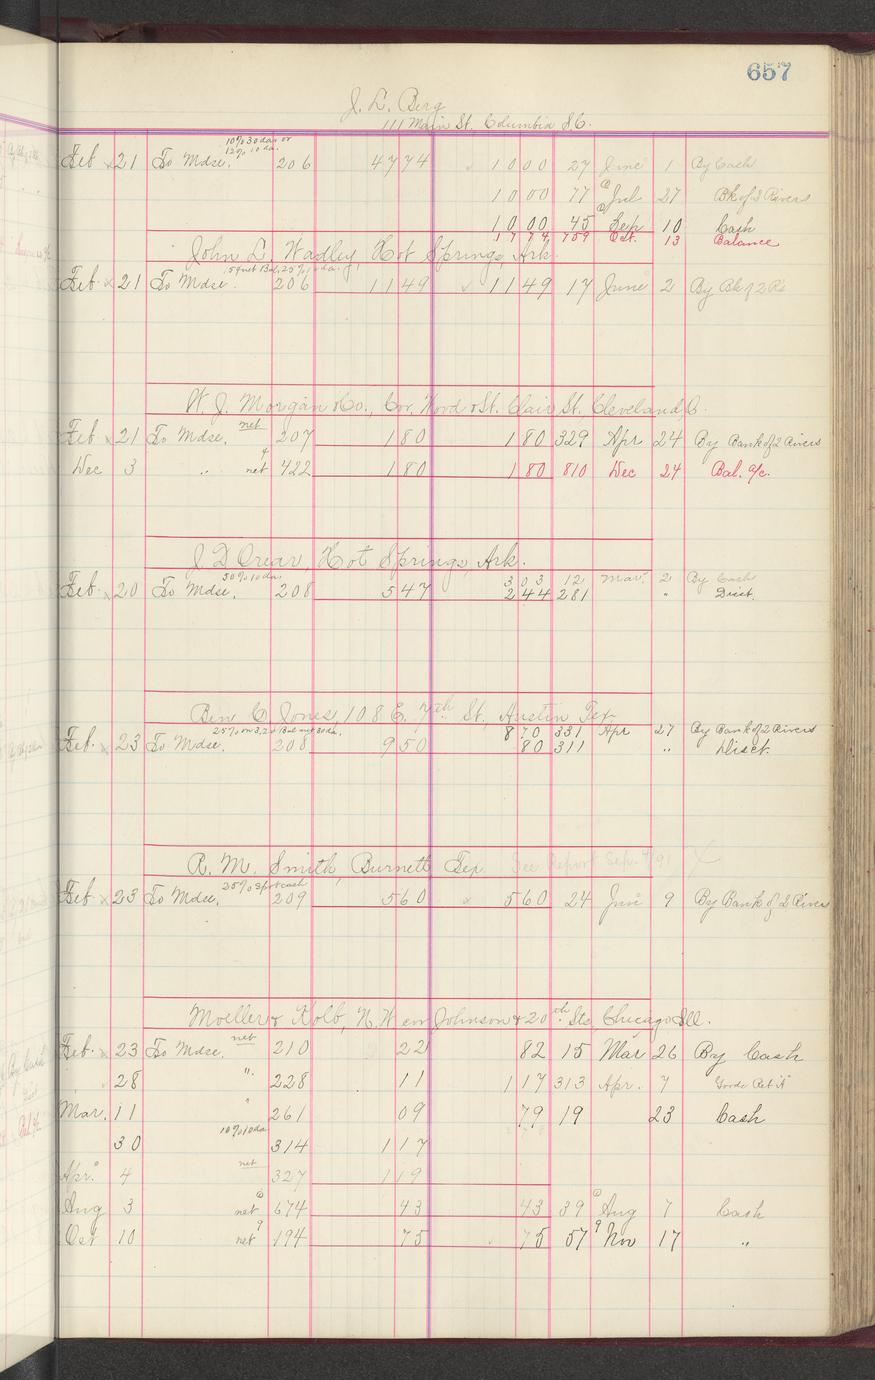 657
J. L. Berg
111 Main St. Columbia S.C.
10% 30 da. or
12% 10 da.
Feb 21 To Mdse. 206 4774 1000 27 June 1 By Cash
1000 77 Jul 27 Bk of 2 Rivers
1000 45 Sep 10 Cash
1774 709 Oct. 13 Balance
John L. Wadley, Hot Springs, Ark.
Feb. 21 To Mdse. 206 1149 1149 17 June 2 By Bk of 2 Rs
W. J. Morgan & Co., Cor. Wood & St. Clair St. Cleveland, O.
Feb 21 To Mdse. net 207 180 180 329 Apr 24 By Bank of 2 Rivers
Dec 3 " net 422 180 180 810 Dec 24 Bal. a/c.
J D Orear, Hot Springs, Ark.
50% 10 da. 303 12 Mar. 2 By Cash
Feb. 20 To Mdse. 208 547 244 281 " Disct.
Ben C. Jones, 108 E. 7th St., Austin Tex.
870 331 Apr 27 By Bank of 2 Rivers
Feb. 23 To Mdse. 208 950 80 311 " Disct.
R. M. Smith, Burnett Tex. See Report Sep. 4/91
25% Spot cash
Feb 23 To Mdse, 209 560 560 24 June 9 By Bank of 2 Rivers
Moeller & Kolb, N.W cor Johnson & 20th Sts, Chicago Ill.
Feb. 23 To Mdse. net 210 22 82 15 Mar 26 By Cash
28 " 228 11 117 313 Apr. 7 Goods Ret'd
Mar. 11 " 261 09 79 19 23 Cash
30 10% 10 da 314 117
Apr. 4 net 327 119
Aug 3 net 674 43 43 39 Aug 7 Cash
Oct 10 net 194 75 75 57 Nov 17 "